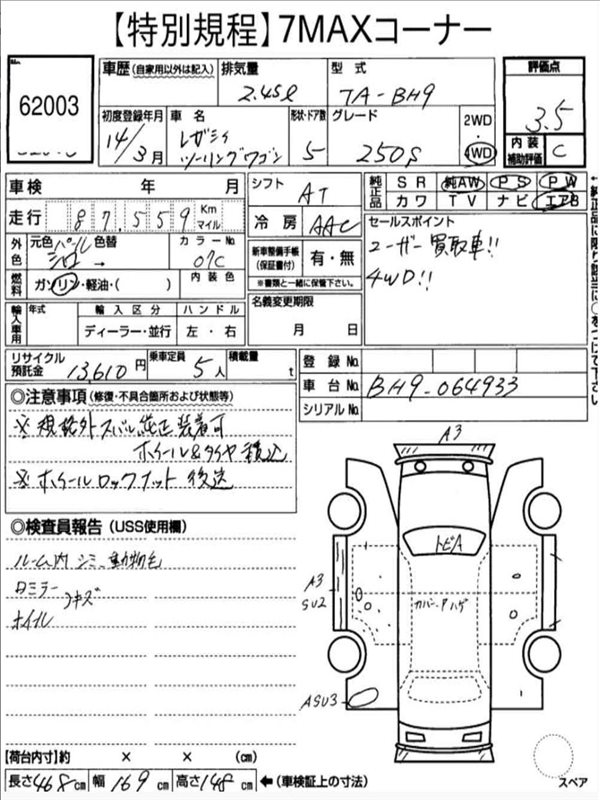 【特別規程】7MAXコーナー
No.
62003
車歴(自家用以外は記入)
排気量
2.45ℓ
型式
TA-BH9
評価点
3.5
初度登録年月
14/3月
車名
レガシィ
ツーリングワゴン
形状・ドア数
5
グレード
250S
2WD
4WD
内装補助評価
C
車検 年 月
走行 87,559 Km マイル
シフト
AT
冷房
AAC
純正品
SR 純AW PS PW
カワ TV ナビ エアB
外色
元色 パール 色替
シロ →
カラーNo.
07C
燃料
ガソリン・軽油・( )
内装色
新車整備手帳
(保証書付)
有・無
※書類と一緒に保管下さい。
セールスポイント
ユーザー買取車!!
4WD!!
輸入車用
年式
輸入区分
ディーラー・並行
ハンドル
左・右
名義変更期限
月 日
リサイクル預託金
13,610円
乗車定員
5人
積載量
t
登録No.
車台No.
BH9-064933
シリアルNo.
◎注意事項(修復・不具合箇所および状態等)
※規格外スバル純正装着可
ホイール&タイヤ積込
※ホイールロックナット後送
◎検査員報告(USS使用欄)
ルーム内シミ、動物毛
Rミラー
キズ
ホイル
A3
トビA
A3
SU2
カバー・Pハゲ
ASU3
スペア
【荷台内寸】約 × × (cm)
長さ468cm 幅169cm 高さ148cm ←(車検証上の寸法)